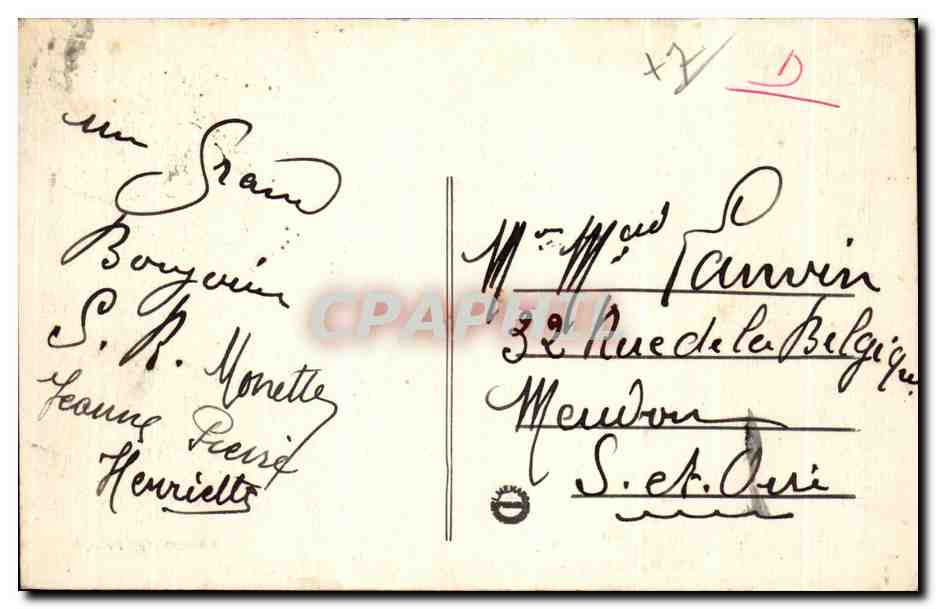 x7
D
un
Grand
Bonjour
S. R. Monette
Jeanne Pierre
Henriette
Mr Md Panvin
32 Rue de la Belgique
Meudon
S. et. Oise
CPAPHIL